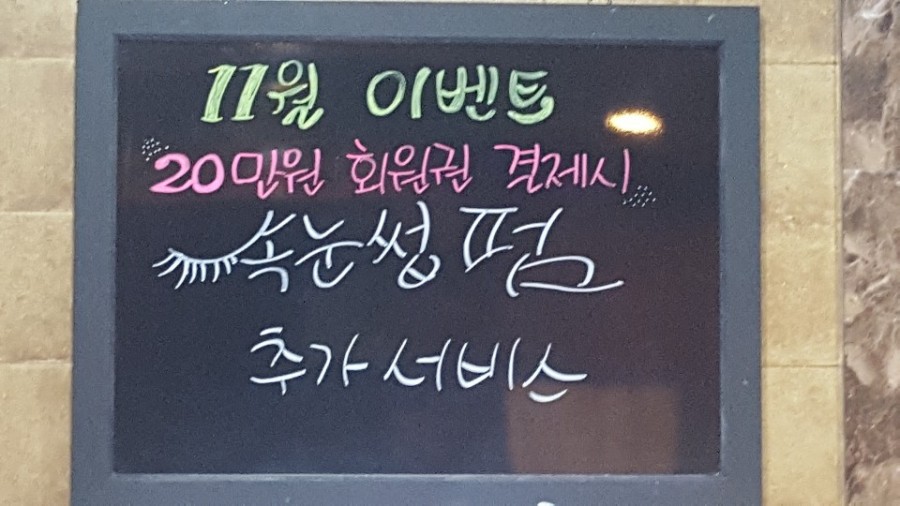 11월 이벤트
20만원 회원권 결제시
속눈썹 펌
추가 서비스